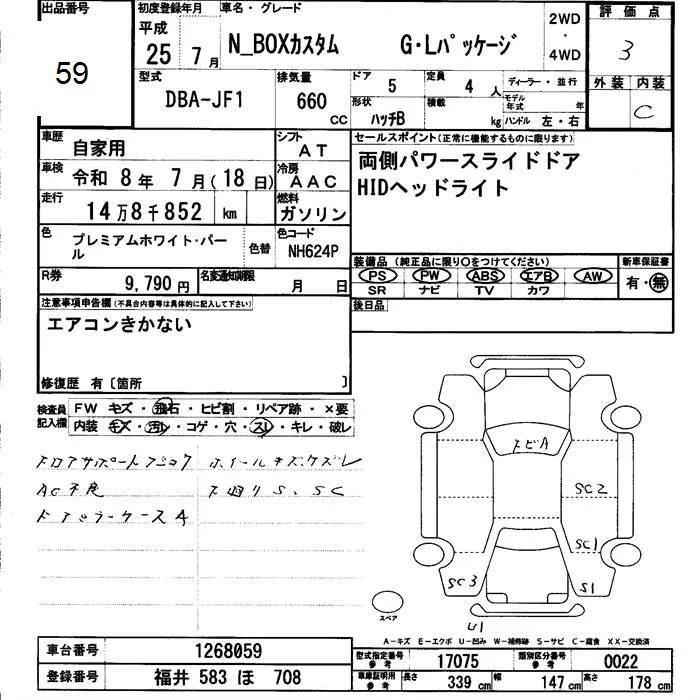 出品番号
59
初度登録年月
平成
25 7月
車名・グレード
N_BOXカスタム G・Lパッケージ
2WD
・
4WD
評価点
3
型式
DBA-JF1
排気量
660
CC
ドア
5
定員
4 人
ディーラー・並行
形状
ハッチB
積載
kg
モデル年式 年
ハンドル 左・右
外装 内装
C
車歴
自家用
シフト
AT
車検
令和 8年 7月(18日)
冷房
AAC
走行
14万8千852 km
燃料
ガソリン
色
プレミアムホワイト・パール
色替
色コード
NH624P
R券
9,790円
名変通知期限
月 日
セールスポイント(正常に機能するものに限ります)
両側パワースライドドア
HIDヘッドライト
装備品(純正品に限り○をつけてください)
PS PW ABS エアB AW
SR ナビ TV カワ
新車保証書
有・無
後日品
注意事項申告欄(不具合内容等は具体的に記入して下さい)
エアコンきかない
修復歴 有〔箇所 〕
検査員記入欄
FW キズ・飛石・ヒビ割・リペア跡・×要
内装 キズ・汚レ・コゲ・穴・スレ・キレ・破レ
フロアサポート
ホイールキズケズレ
AC不良
下回りS、SC
ドアミラーケースA
トビA
SC2
SC1
SC3
S1
U1
スペア
A-キズ E-エクボ U-凹み W-補修跡 S-サビ C-腐食 XX-交換済
車台番号
1268059
登録番号
福井 583 ほ 708
型式指定番号
参考
17075
類別区分番号
参考
0022
車庫証明用
参考
長さ
339 cm
幅
147 cm
高さ
178 cm